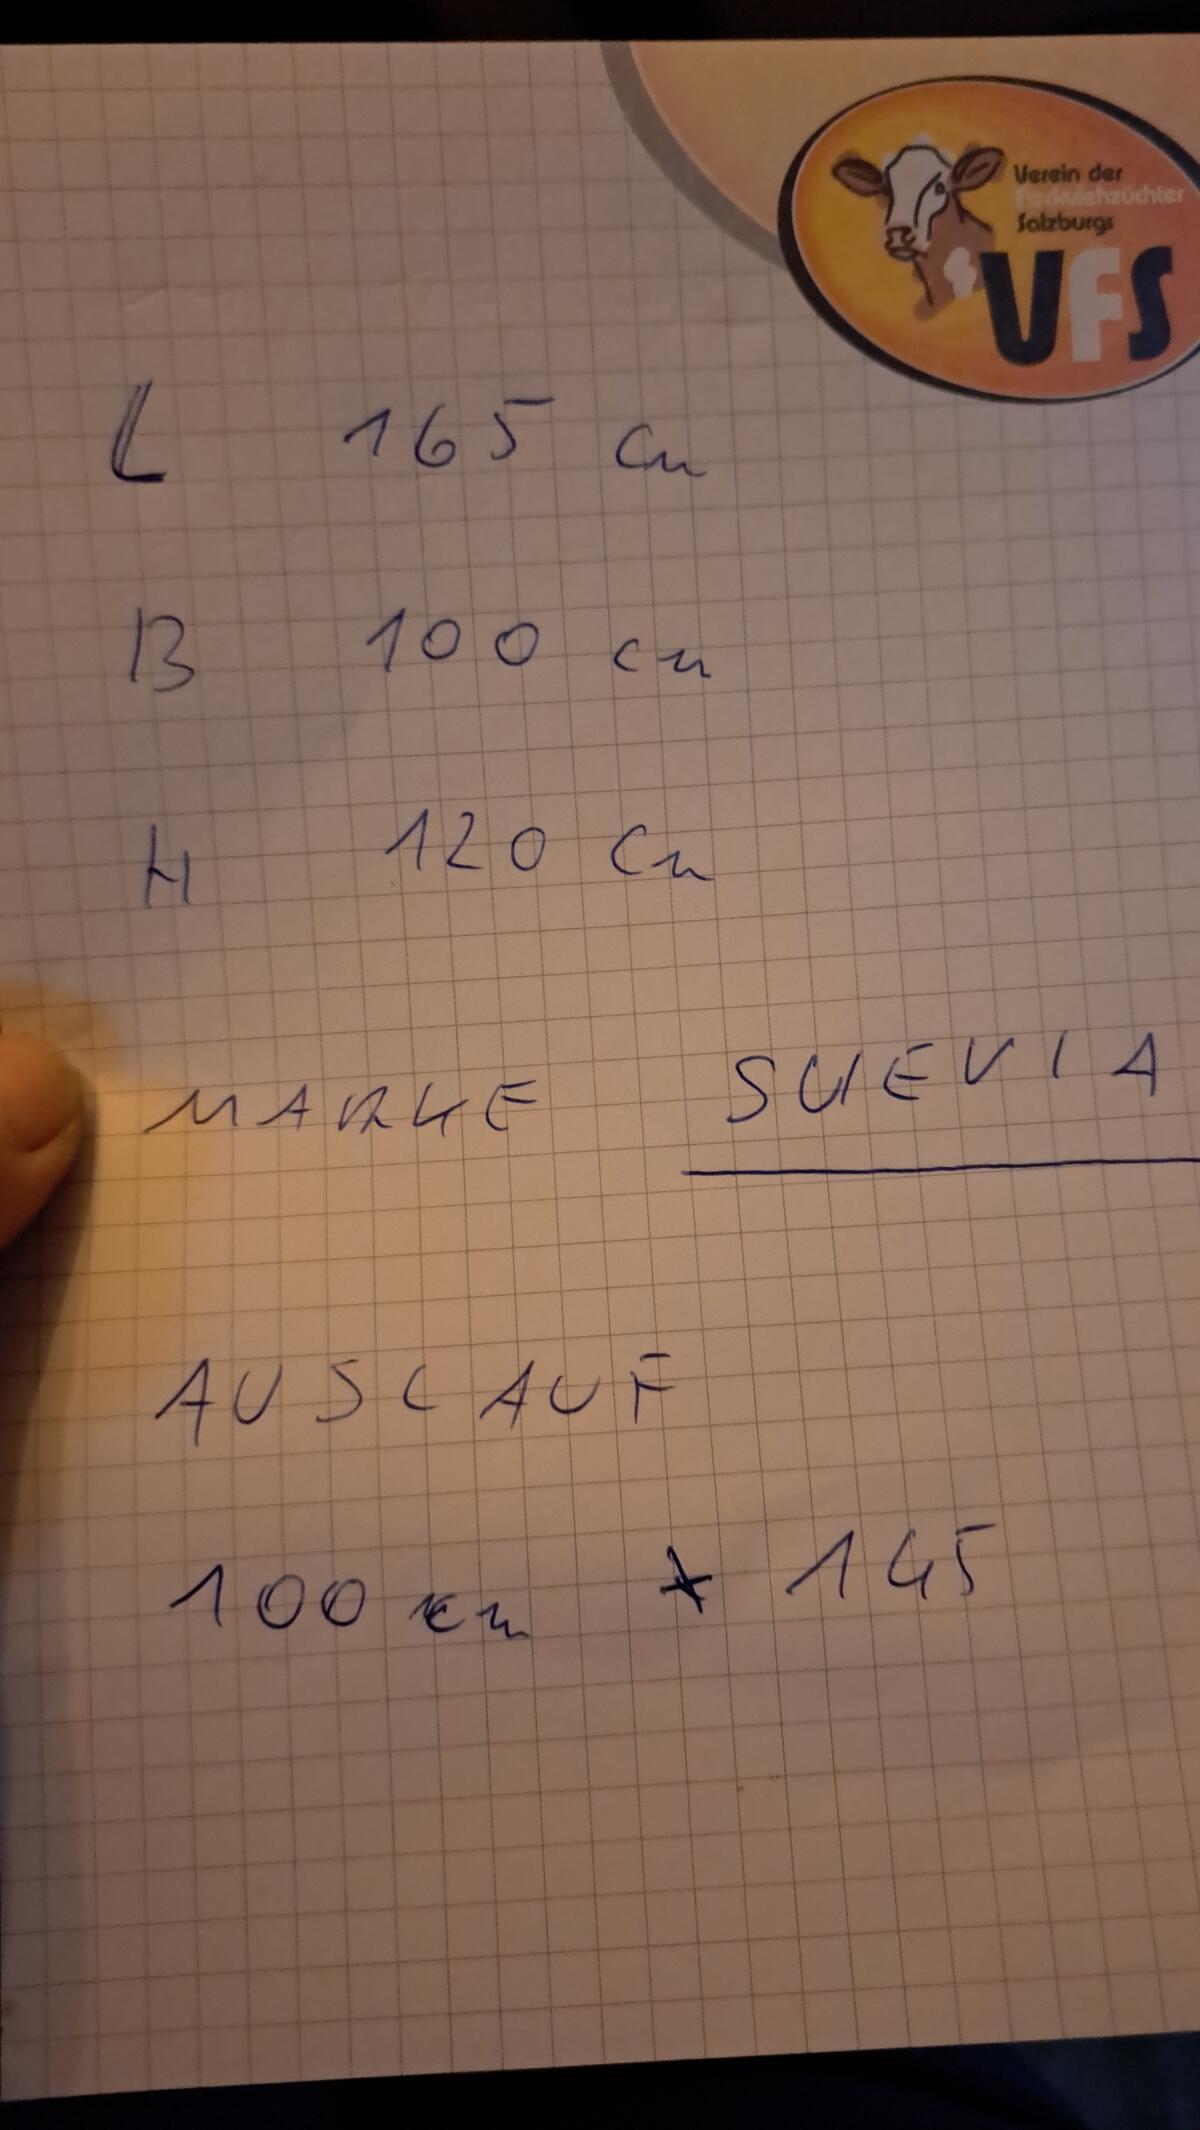 Verein der
Fleckviehzüchter
Salzburgs
VFS
L 165 cm
B 100 cm
H 120 cm
MARKE SUEVIA
AUSLAUF
100 cm * 145